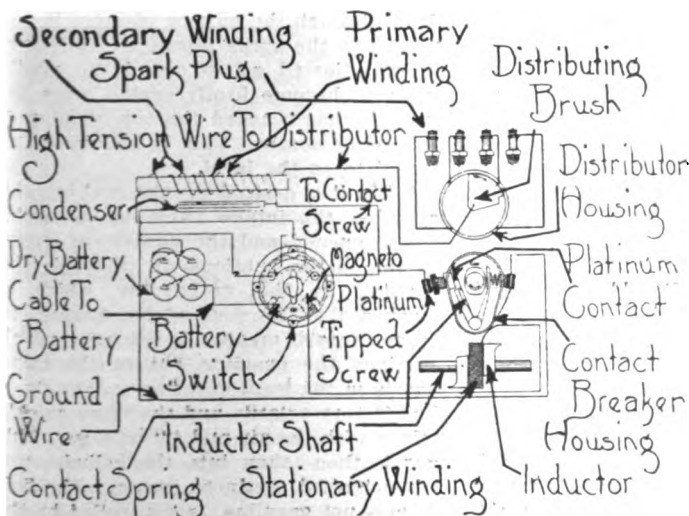 Secondary Winding
Primary
Winding
Spark Plug
Distributing
Brush
High Tension Wire To Distributor
Distributor
Housing
Condenser
To Contact
Screw
Dry Battery
Magneto
Platinum
Contact
Cable To
Battery
Battery
Switch
Platinum
Tipped
Screw
Contact
Breaker
Housing
Ground
Wire
Inductor Shaft
Contact Spring
Stationary Winding
Inductor